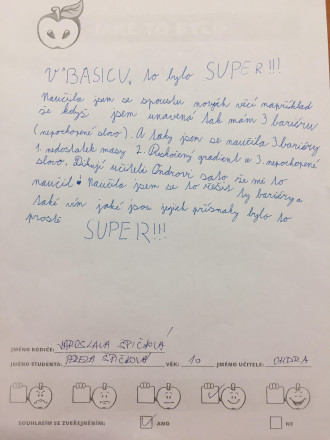 V BASICU, to bylo SUPER!!!
Naučila jsem se spoustu nových věcí například
že když jsem unavená tak mám 3 bariéru
(nepochopené slovo). A taky jsem se naučila 3 bariéry
1. nedostatek masy 2. Přeskočený gradient a 3. nepochopené
slovo. Děkuji učiteli Ondrovi za to že mě to
naučil. Naučila jsem se to řešit ty bariéry a
také vím jaké jsou jejich příznaky bylo to
prostě
SUPER!!!
JMÉNO RODIČE: JAROSLAVA ŠPIČKOVÁ
JMÉNO STUDENTA: TEREZA ŠPIČKOVÁ VĚK: 10 JMÉNO UČITELE: ONDRA
SOUHLASÍM SE ZVEŘEJNĚNÍM: ANO NE